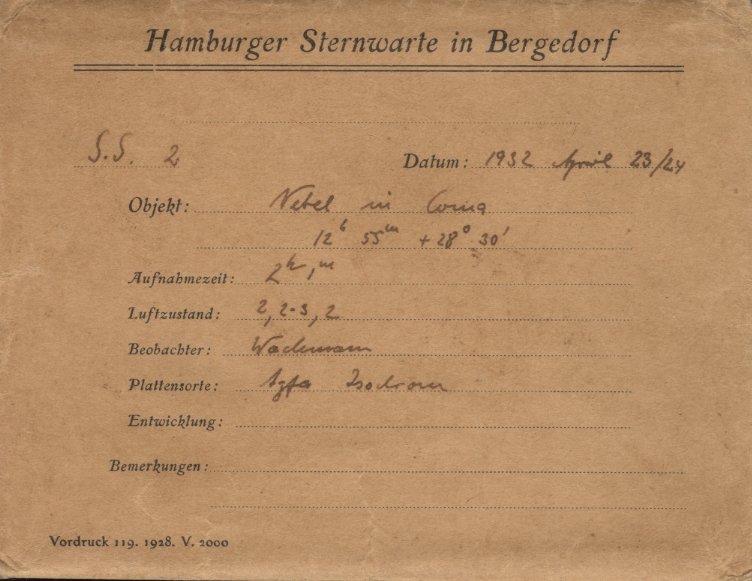 Hamburger Sternwarte in Bergedorf
S.S. 2 Datum: 1932 April 23/24
Objekt: Nebel in Coma
12h 55m +28° 30'
Aufnahmezeit: 2h, m
Luftzustand: 2, 2-3, 2
Beobachter: Wachmann
Plattensorte: Agfa Isochrom
Entwicklung:
Bemerkungen:
Vordruck 119. 1928. V. 2000